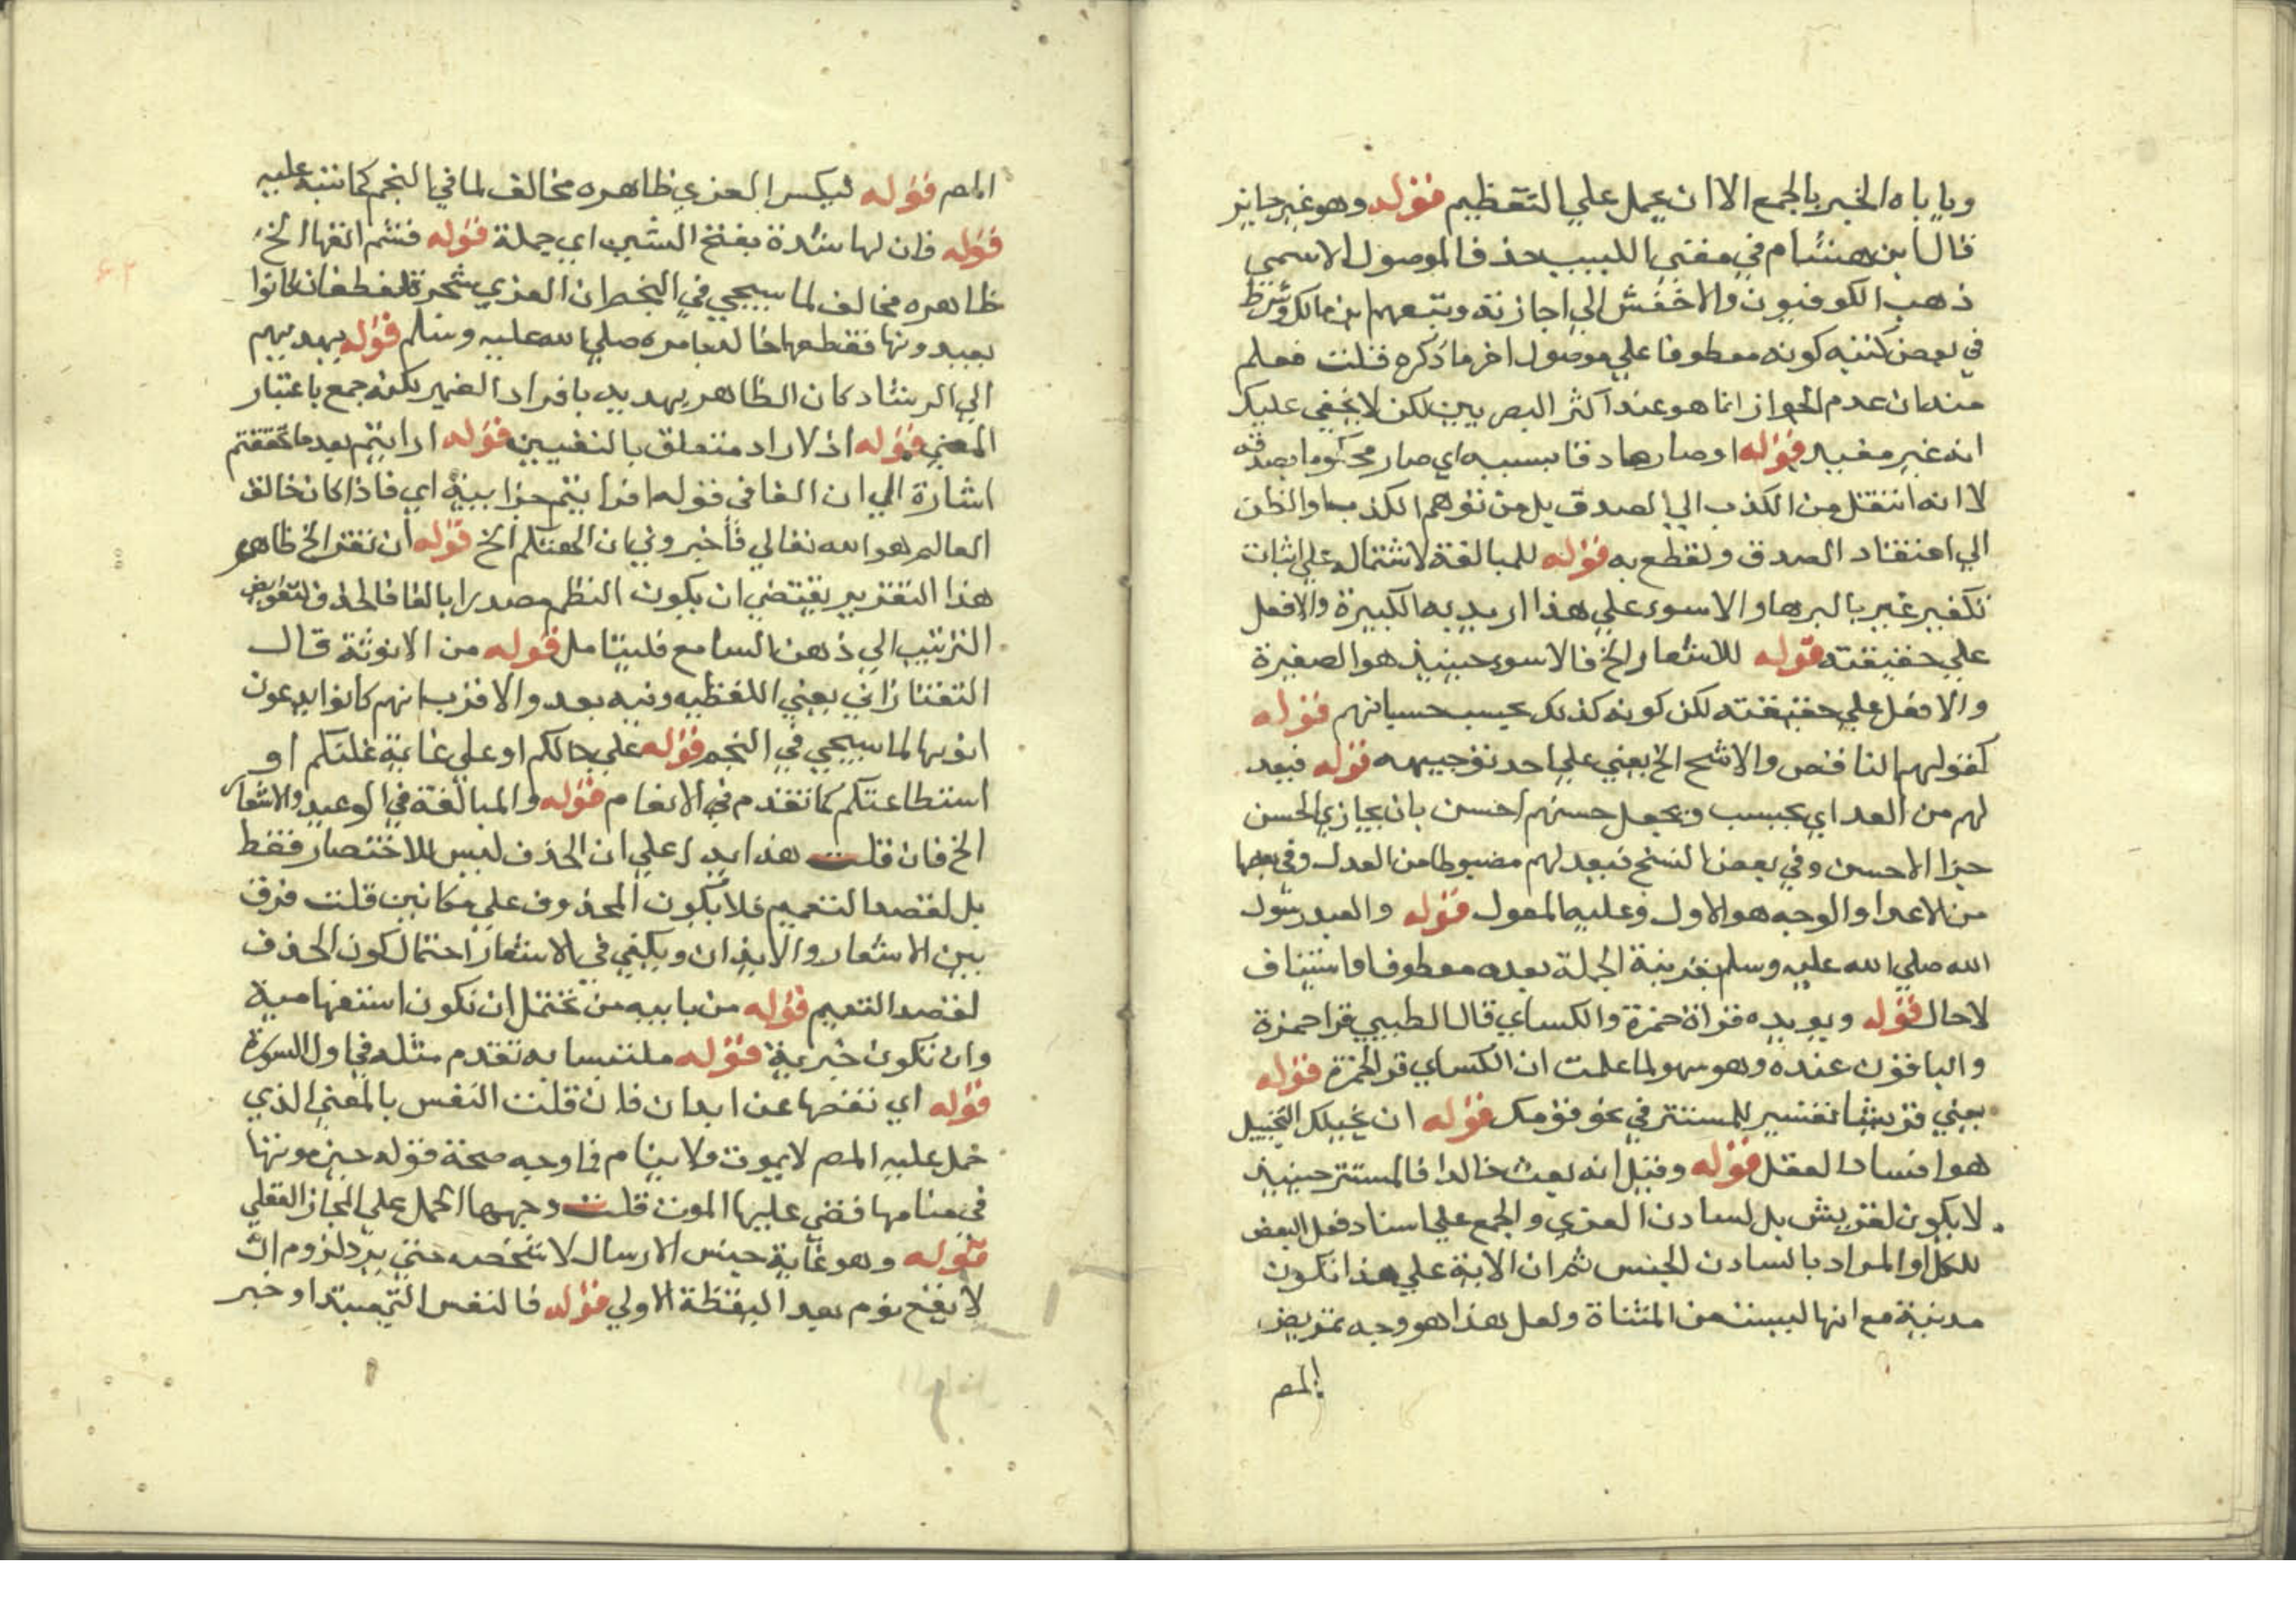 وياباه الخبر بالجمع الا ان يحمل علي التعظيم قوله وهو غير جايز
قال ابن هشام في مغني اللبيب حذف الموصول الاسمي
ذهب الكوفيون والاخفش الي اجازته وتبعهم ابن مالك وشرط
في بعض كتبه كونه معطوفا علي موصول اخر ما ذكره قلت فعلم
منه ان عدم الجواز انما هو عند اكثر البصريين لكن لا يخفي عليك
انه غير مفيد قوله او صار صادقا بسببه اي صار محكوما بصدقه
لا انه انتقل من الكذب الي الصدق بل من توهم الكذب او الظن
الي اعتقاد الصدق والقطع به قوله للمبالغة لاشتماله علي اثبات
تكفير غير بالبرهان والاسوء علي هذا اريد به الكبيرة والافعل
علي حقيقته قوله للاشعار الخ فالاسوء حينيذ هو الصغيرة
والافعل علي حقيقته لكن كونه كذلك بحسب حسبانهم قوله
كقولهم الناقص والاشج الخ يعني علي احد توجيهه قوله فيعد
لهم من العد اي يحسب ويجعل حسنهم احسن بان يجازي الحسن
جزا الاحسن وفي بعض النسخ فيعدلهم مضبوطا من العدل وفي بعضها
من الاعداد والوجه هو الاول وعليه المعول قوله والعبد رسول
الله صلي الله عليه وسلم بقرينة الجملة بعده معطوفا واستيناف
لاحال قوله ويويده قراة حمزة والكساي قال الطيبي قرا حمزة
والباقون عنده وهو سهو لما علمت ان الكساي قرا لحمزة قوله
يعني قريشا تفسير للمستتر في يخوفونك قوله ان يخبلك التخبيل
هو افساد العقل قوله وقيل انه بعث خالدا فالمستتر حينيذ
لا يكون لقريش بل لسادن العزي والجمع علي اسناد فعل البعض
للكل او المراد بالسادن الجنس ثم ان الاية علي هذا تكون
مدنية مع انها ليست من المثناة ولعل هذا هو وجه تمريض
المص
المص قوله ليكسر العزي ظاهره مخالف لما في النجم كما ننبه عليه
قوله فان لها شدة بفتح الشين اي حملة قوله فهشم انفها الخ
ظاهره مخالف لما سيجي في النجم ان العزي شجرة لغطفان كانوا
يعبدونها فقطعها خالد بامره صلي الله عليه وسلم قوله يهديهم
الي الرشاد كان الظاهر يهديه بافراد الضمير لكنه جمع باعتبار
المعني قوله اذ لا راد متعلق بالنفيين قوله ارايتم بعد ما تحققتم
اشارة الي ان الفا في قوله افرايتم جزاييه اي فاذا كان خالق
العالم هو الله تعالي فاخبروني ان الهتكم الخ قوله ان نقدر الخ ظاهر
هذا التقرير يقتضي ان يكون النظم مصدرا بالفا فالحذف لتفويض
الترتيب الي ذهن السامع فليتامل قوله من الانوثة قال
التفتازاني يعني اللفظيه وفيه بعد والاقرب انهم كانوا يدعون
انوثها لما سيجي في النجم قوله علي حالكم او علي غاية غلتكم او
استطاعتكم كما تقدم في الانعام قوله والمبالغة في الوعيد والاشعار
الخ فان قلت هذا يدل علي ان الحذف ليس للاختصار فقط
بل لقصد التعميم فلا يكون المحذوف علي مكانتي قلت فرق
بين الاشعار والايذان ويكفي في الاشعار احتمال كون الحذف
لقصد التعميم قوله من ياتيه من تحتمل ان تكون استفهامية
وان تكون خبرية قوله ملتبسا به تقدم مثله في اول السورة
قوله اي نقبضها عن ابدان فان قلت النفس بالمعني الذي
حمل عليه المص لا يموت ولا ينام فما وجه صحة قوله حين موتها
في منامها قضي عليها الموت قلت وجهها الحمل علي المجاز العقلي
قوله وهو غاية جنس الارسال لا شخصه حتي يرد لزوم ان
لا يقع نوم بعد اليقظة الاولي قوله فالنفس التي مبتدا وخبر